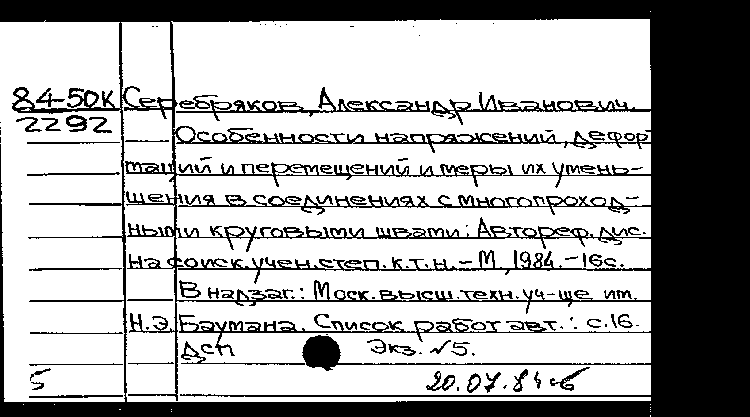 84-50К Серебряков, Александр Иванович.
2292 Особенности напряжений, дефор-
маций и перемещений и меры их умень-
шения в соединениях с многопроход-
ными круговыми швами: Автореф. дис.
на соиск. учен. степ. к.т.н. – М., 1984. – 16с.
В надзаг.: Моск. высш. техн. уч-ще им.
Н.Э. Баумана. Список работ авт.: с.16.
ДСП Экз. √5.
5 20.07.84